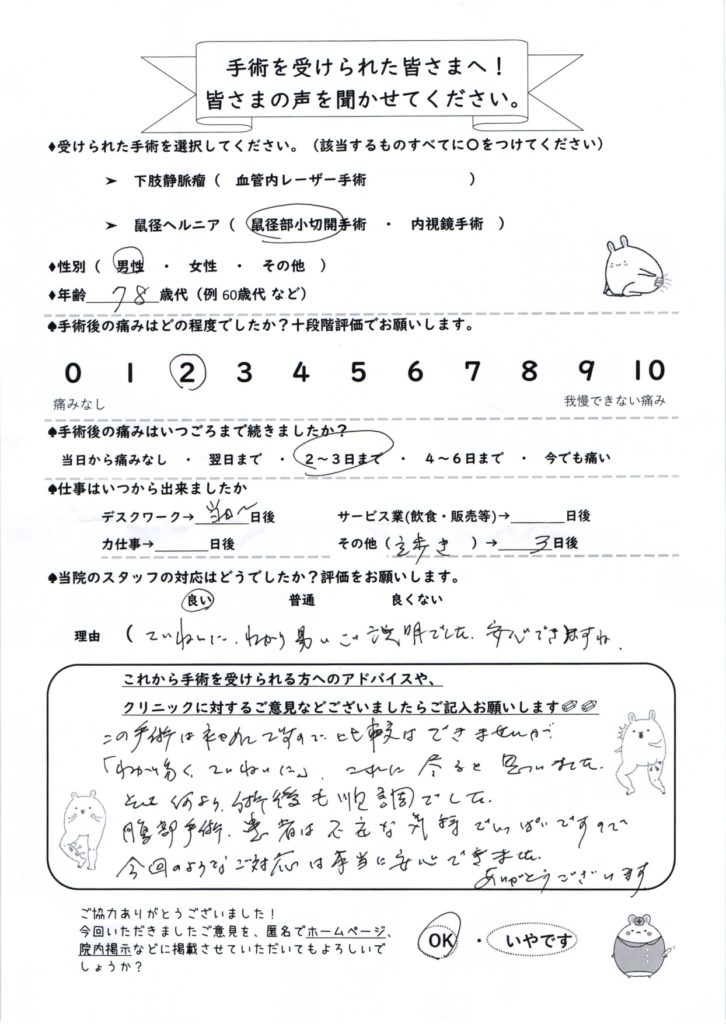 手術を受けられた皆さまへ！
皆さまの声を聞かせてください。
♦受けられた手術を選択してください。（該当するものすべてに〇をつけてください）
➤ 下肢静脈瘤（ 血管内レーザー手術 ）
➤ 鼠径ヘルニア（ 鼠径部小切開手術 ・ 内視鏡手術 ）
♦性別（ 男性 ・ 女性 ・ その他 ）
♦年齢 78 歳代（例 60歳代 など）
♠手術後の痛みはどの程度でしたか？十段階評価でお願いします。
0 1 2 3 4 5 6 7 8 9 10
痛みなし 我慢できない痛み
♠手術後の痛みはいつごろまで続きましたか？
当日から痛みなし ・ 翌日まで ・ 2～3日まで ・ 4～6日まで ・ 今でも痛い
♠仕事はいつから出来ましたか
デスクワーク→ 当日～ 日後 サービス業(飲食・販売等)→ 日後
力仕事→ 日後 その他（ 歩き ）→ 3 日後
♠当院のスタッフの対応はどうでしたか？評価をお願いします。
良い 普通 良くない
理由 （ ていねいに、わかり易いご説明でした。安心できますね。
これから手術を受けられる方へのアドバイスや、
クリニックに対するご意見などございましたらご記入お願いします
この手術は初めてですので比較はできませんが、
「わかり易く、ていねいに」、これに尽ると思いました。
そして何より、術後も順調でした。
腹部手術、患者は不安な気持でいっぱいですので
今回のようなご対応は本当に安心できました。
ありがとうございます
ご協力ありがとうございました！
今回いただきましたご意見を、匿名でホームページ、
院内掲示などに掲載させていただいてもよろしいで
しょうか？
OK ・ いやです